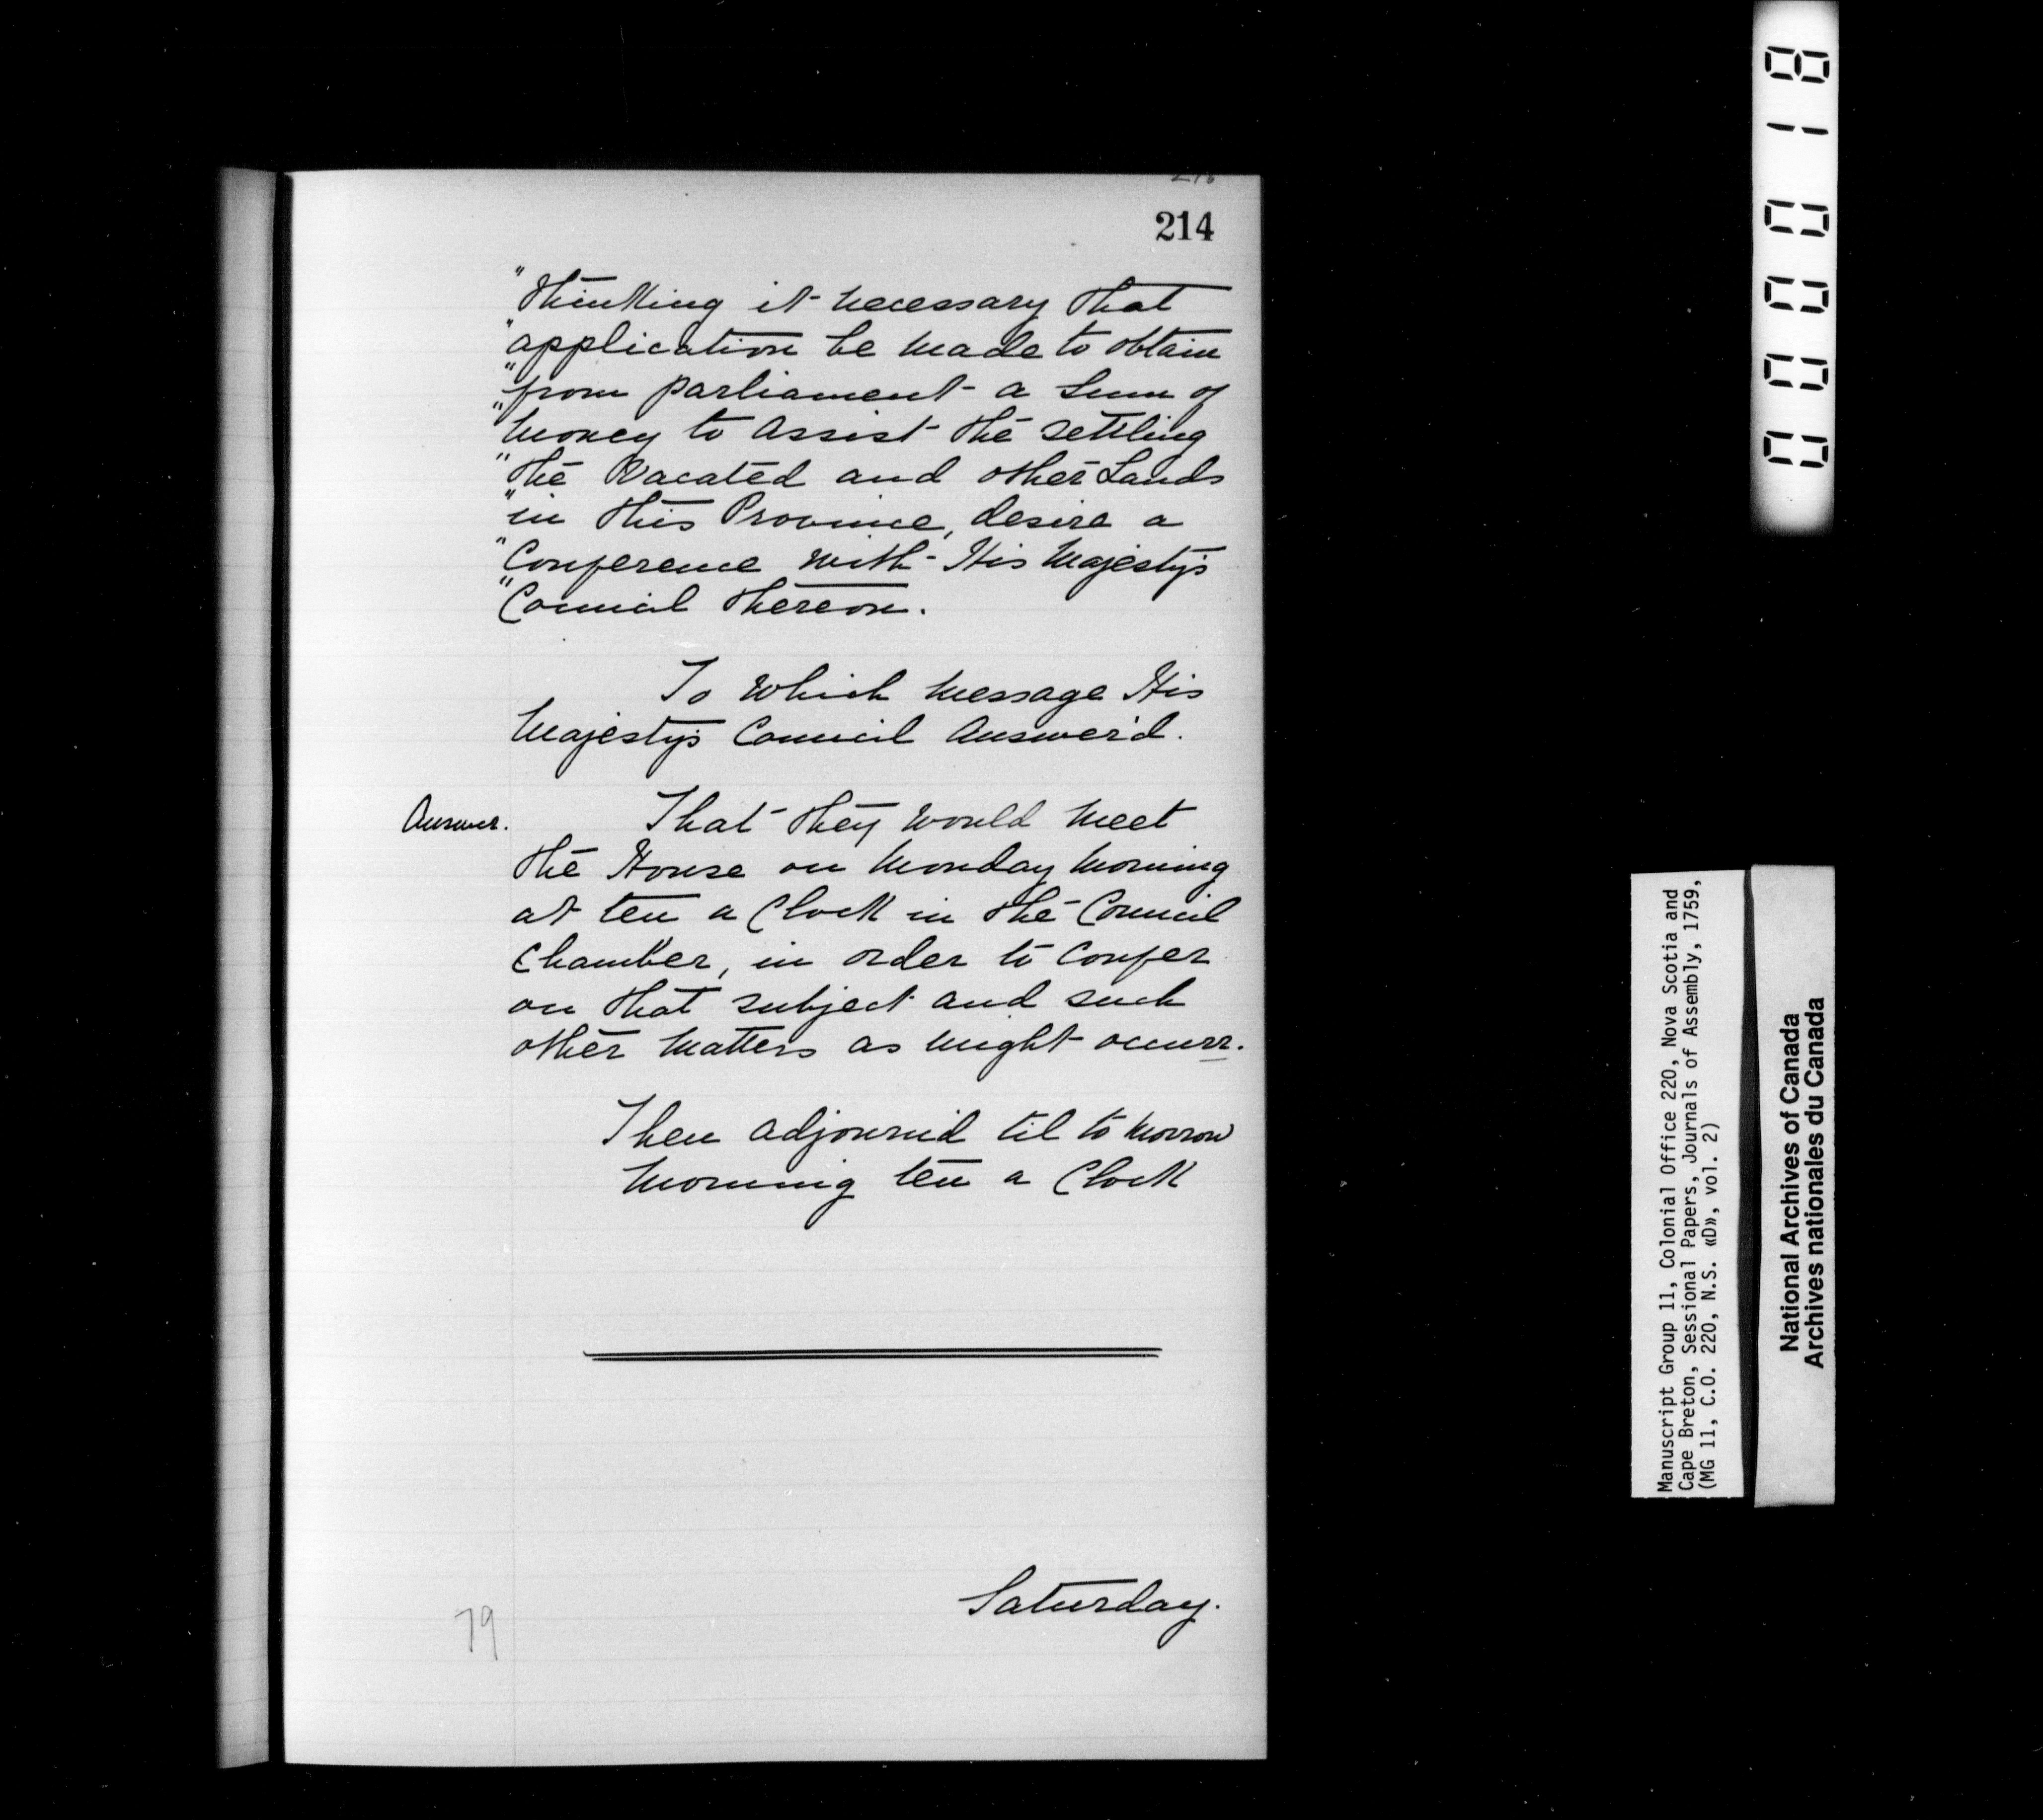 214
"thinking it necessary that
"application be made to obtain
"from parliament a Sum of
"money to assist the settling
"the Vacated and other Lands
"in this Province, desire a
"Conference with His Majesty's
"Council thereon.
To which message His
Majesty's Council Answer'd.
Answer.
That they would meet
the House on Monday morning
at ten a Clock in the Council
Chamber, in order to Confer
on that subject and such
other matters as might occurr.
Then adjourn'd til to morrow
morning ten a Clock
Saturday.
79
000018
Manuscript Group 11, Colonial Office 220, Nova Scotia and
Cape Breton, Sessional Papers, Journals of Assembly, 1759,
(MG 11, C.O. 220, N.S. «D», vol. 2)
National Archives of Canada
Archives nationales du Canada